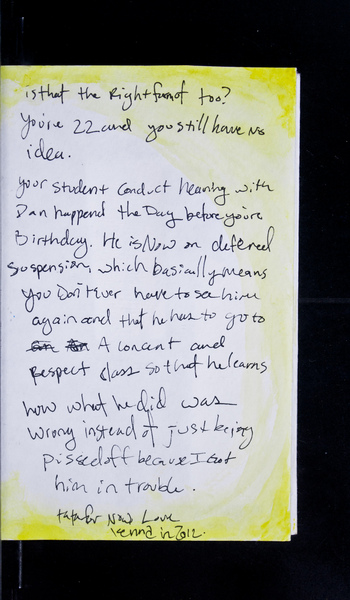 is that the Right form of too?
You're 22 and you still have no
idea.
your student conduct hearing with
Dan happend the Day before you're
Birthday. He is Now on defered
suspension, which basically means
you Don't Ever have to see him
again and that he has to go to
A concent and
Respect class so that he learns
how what he did was
wrong instead of just being
pissed off because I Got
him in trouble.
tata for Now Love
Jenna in 2012.